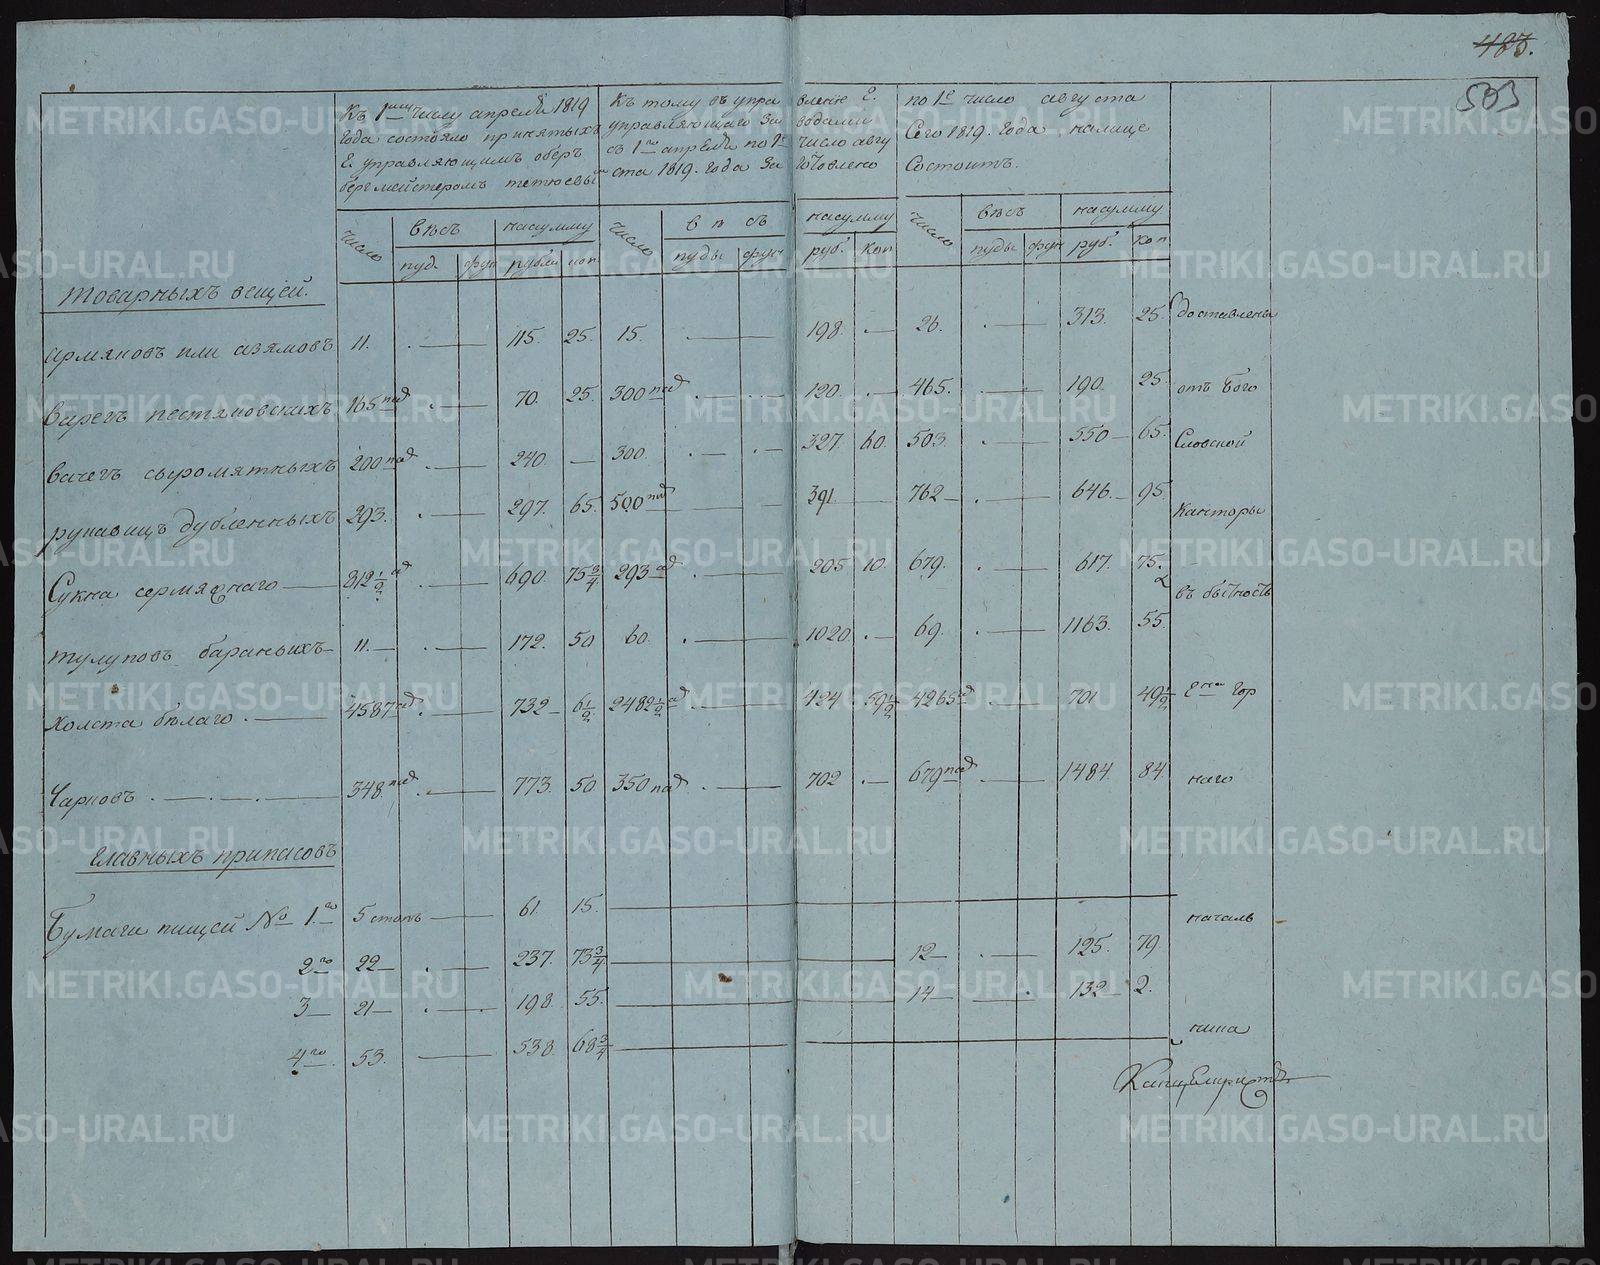 483.
503
Къ 1му числу апреля 1819 года состояло принятыхъ Г. управляющимъ оберъ бергмейстеромъ тетюевым
Къ тому въ управление Г. управляющаго заводами съ 1го апреля по 1е число августа 1819. года заготовлено
по 1е число августа сего 1819. года налице состоитъ.
число вѣсъ насумму число вѣсъ насумму число вѣсъ насумму
пуд. фун рубли коп пуды фун руб. коп пуды фун руб. коп
товарныхъ вещей.
армяковъ или азямовъ 11. 115. 25. 15. 198. 26. 313. 25. доставлена
варегъ пестяковскихъ 165 пад 70. 25. 300 пад 120. 465. 190. 25. отъ Бого
вачегъ сыромятныхъ 200 пад 240. — 300. 327. 60. 503. 550 65. Словской
рукавицъ дубленныхъ 293. 297. 65. 500 пад 391 762 646. 95. Канторы
Сукна сермяжнаго 812 1/2 ад 690. 75 3/4 293 ад 205 10. 679. 617. 75. въ бытность
тулуповъ бараньихъ 11. 172. 50 60. 1020. 69. 1163. 55.
холста бѣлаго 4587 ад 732 6 1/2 2482 1/2 ад 424 59 1/2 4265 ад 701 49 1/2 Гна Гор
Чарковъ 348 пад 773. 50 350 пад 702 679 пад 1484. 84. наго
главныхъ припасовъ
Бумаги пищей № 1го 5 стопъ 61. 15. началь
2го 22 237. 73 3/4 12 125. 79.
3 21 198. 55. 14 132 2.
ника
4го 53. 538. 68 3/4
Канцеляристъ
METRIKI.GASO-URAL.RU